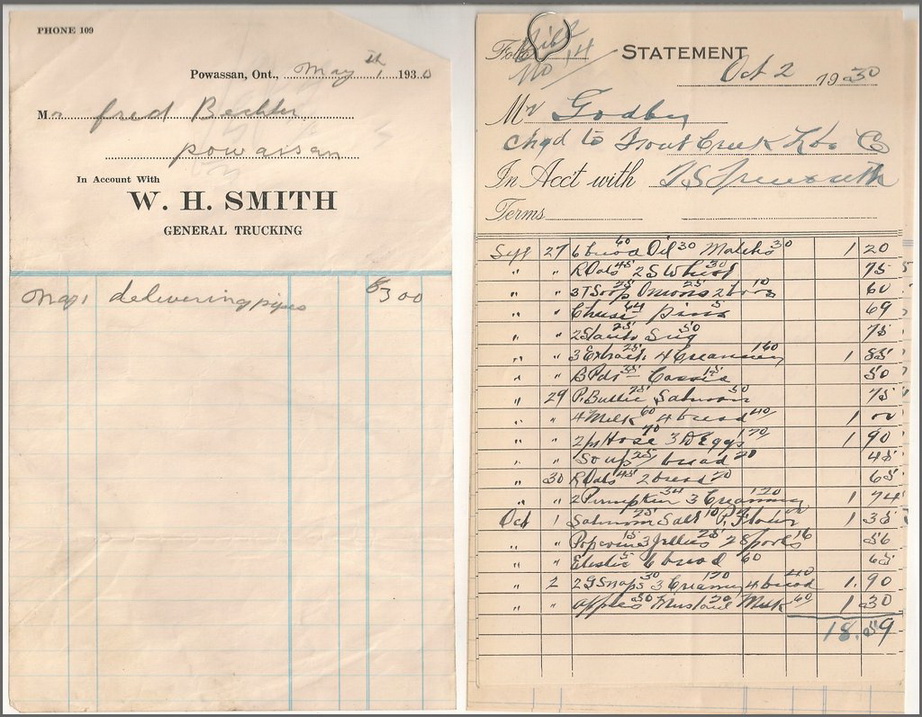 PHONE 109
Powassan, Ont., May 1th 1930
Mr fred Bechler
powassan
In Account With
W. H. SMITH
GENERAL TRUCKING
May 1 delivering pipes 3 00
No 14
STATEMENT
Oct 2 1930
Mr Godby
chgd to Trout Creek Co
In Acct with
Terms
Sept 27 6 bread 60 Oil 30 Matches 30 1 20
" " R Oats 45 2 S Wheat 30 75
" " 3 T Soap 25 Onions 25 10 60
" " Cheese 64 pins 5 69
" " 25 Sug 50 75
" " 3 Extract 25 4 Creamery 160 1 85
" " B Pdr 35 Cassia 15 50
" 29 P. Butter 25 Salmon 50 75
" " 4 Milk 60 4 bread 40 1 00
" " 2 pr Hose 70 3 D Eggs 120 1 90
" " Soup 25 2 bread 20 45
" 30 R Oats 45 2 bread 20 65
" " 2 Pumpkin 54 3 Creamery 120 1 74
Oct 1 Salmon 25 Salt 10 P. Flour 1 35
" " Popcorn 15 3 Jellies 25 2 Spools 16 56
" " Elastic 5 6 bread 60 65
" 2 2 G Snaps 30 3 Creamery 120 4 bread 40 1.90
" " apples 50 Mustard 20 Milk 60 1 30
18.59